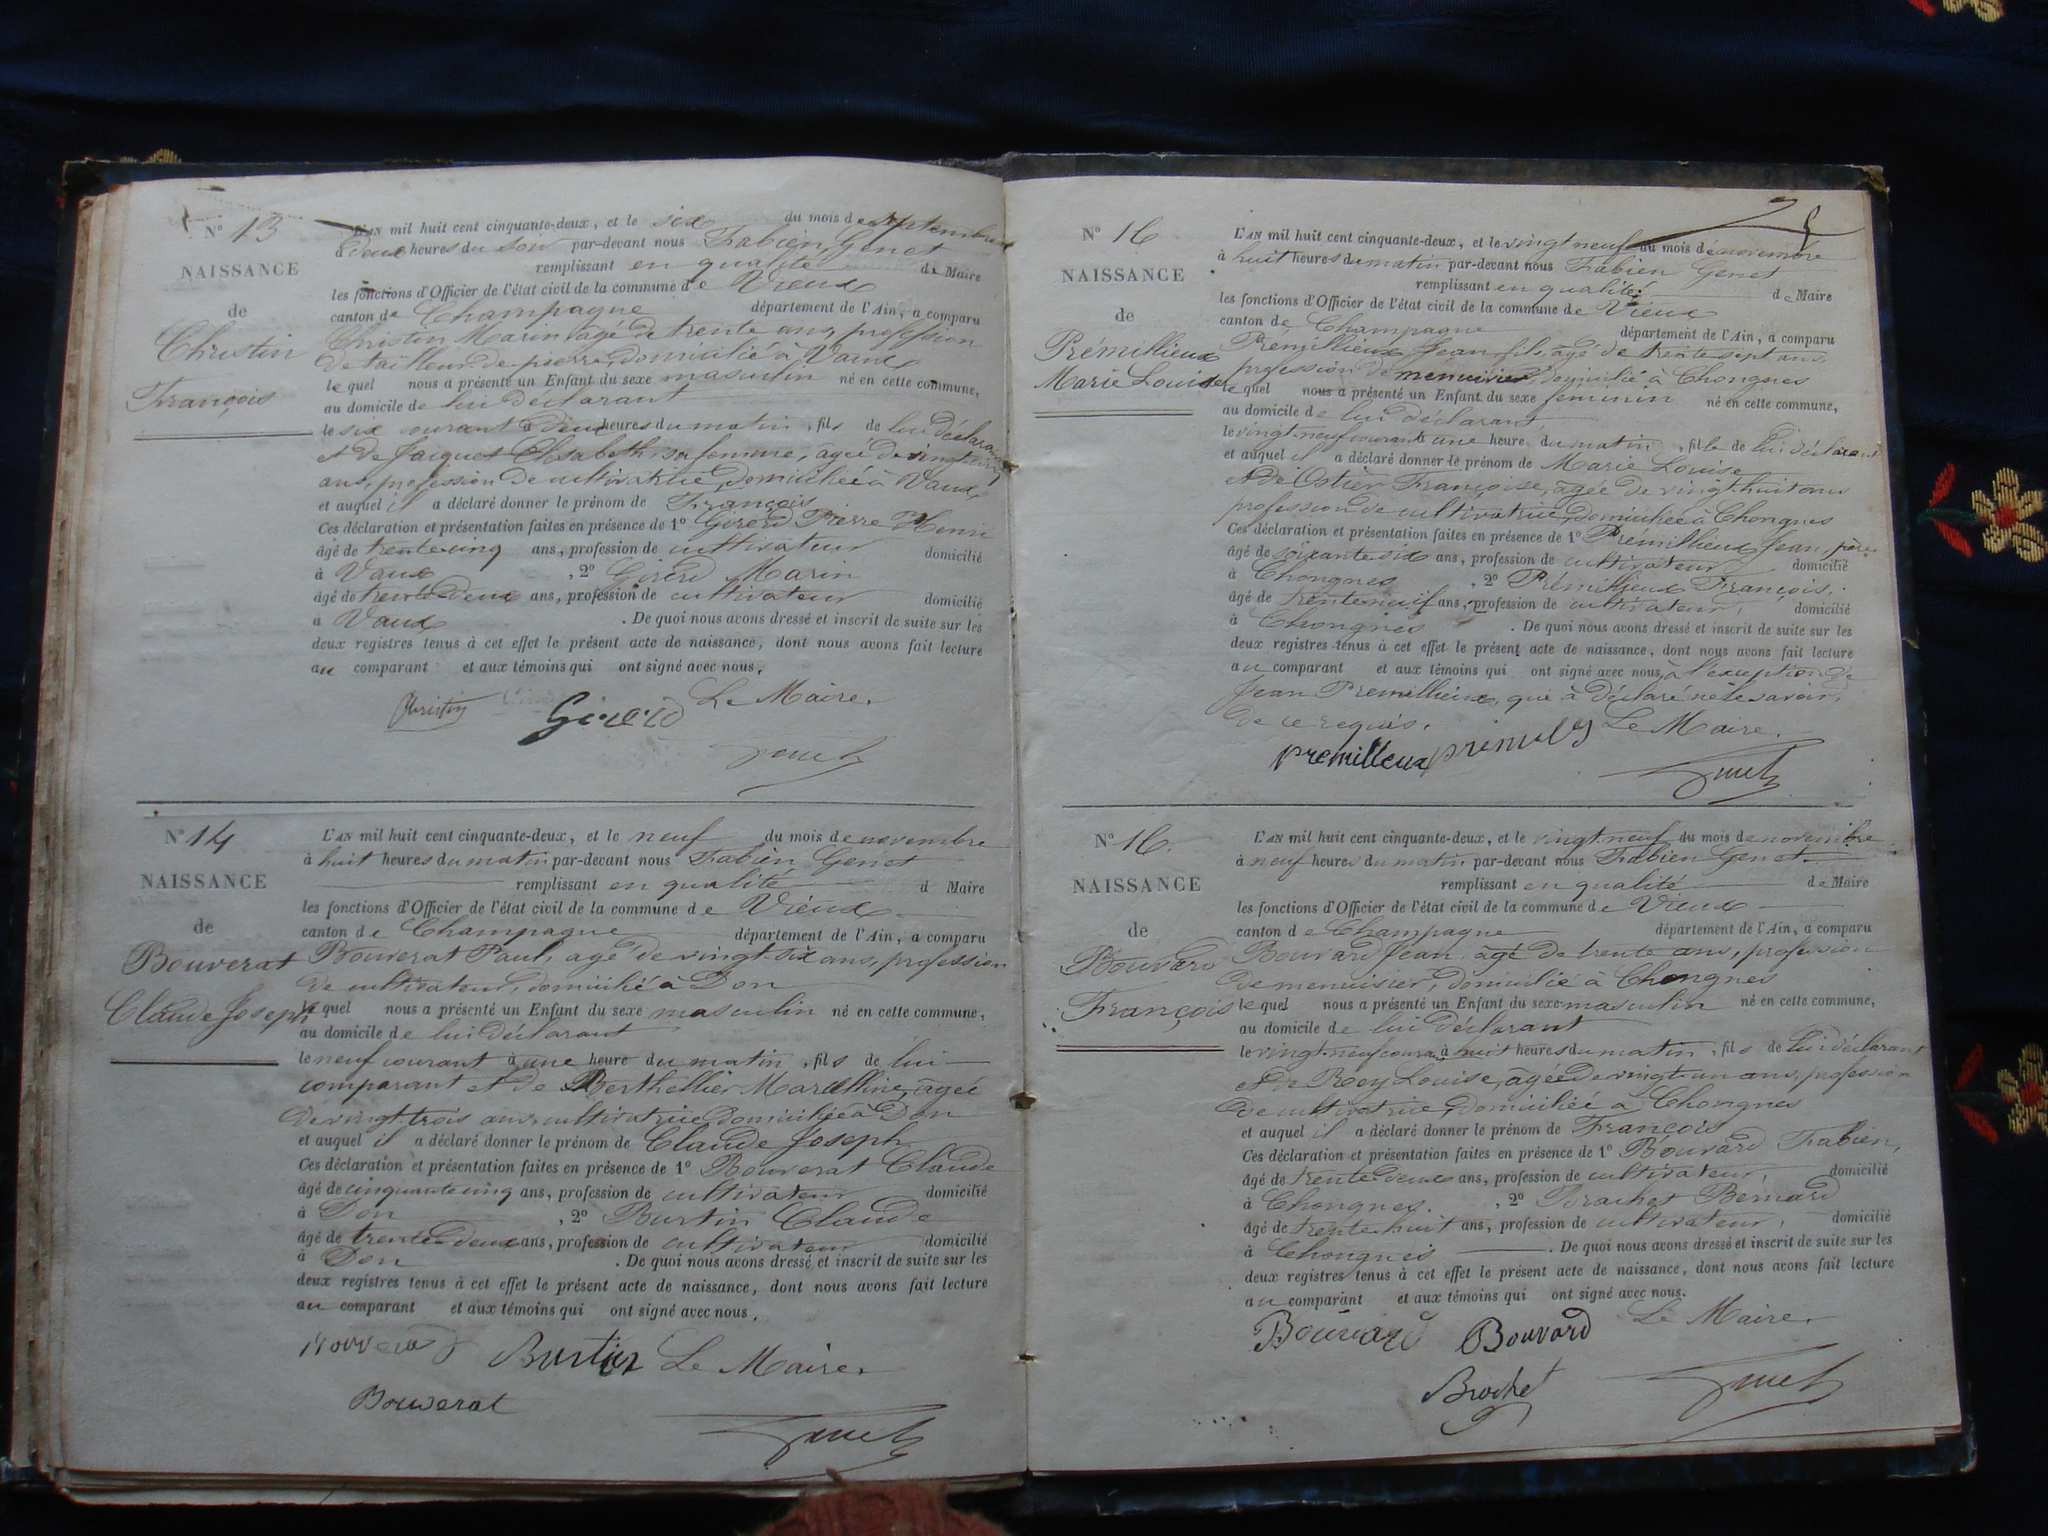 N° 13
NAISSANCE
de
Christin
François
L'AN mil huit cent cinquante-deux, et le six du mois de Septembre
à deux heures du soir par-devant nous Fabien Genet
remplissant en qualité de Maire
les fonctions d'Officier de l'état civil de la commune de Vieux
canton de Champagne département de l'Ain, a comparu
Christin Marin âgé de trente ans, profession
de tailleur de pierre, domicilié à Vaux
le quel nous a présenté un Enfant du sexe masculin né en cette commune,
au domicile de lui déclarant
le six courant à deux heures du matin, fils de lui déclarant
et de Jacquet Elisabeth sa femme, agée de
ans, profession de cultivatrice, domiciliée à Vaux,
et auquel il a déclaré donner le prénom de François
Ces déclaration et présentation faites en présence de 1° Girerd Pierre Henri
âgé de trente cinq ans, profession de cultivateur domicilié
à Vaux, 2° Girerd Marin
âgé de trente deux ans, profession de cultivateur domicilié
à Vaux. De quoi nous avons dressé et inscrit de suite sur les
deux registres tenus à cet effet le présent acte de naissance, dont nous avons fait lecture
au comparant et aux témoins qui ont signé avec nous.
Christin Girerd Le Maire.
Genet
N° 14
NAISSANCE
de
Bouverat
Claude Joseph
L'AN mil huit cent cinquante-deux, et le neuf du mois de novembre
à huit heures du matin par-devant nous Fabien Genet
remplissant en qualité d Maire
les fonctions d'Officier de l'état civil de la commune de Vieux
canton de Champagne département de l'Ain, a comparu
Bouverat Paul, agé de vingt six ans, profession
de cultivateur, domicilié à Don
le quel nous a présenté un Enfant du sexe masculin né en cette commune,
au domicile de lui déclarant
le neuf courant à une heure du matin, fils de lui
comparant et de Berthellier Marcelline, agée
de vingt-trois ans, cultivatrice, domiciliée à Don
et auquel il a déclaré donner le prénom de Claude Joseph
Ces déclaration et présentation faites en présence de 1° Bouverat Claude
âgé de cinquante cinq ans, profession de cultivateur domicilié
à Don, 2° Burtin Claude
âgé de trente-deux ans, profession de cultivateur domicilié
à Don. De quoi nous avons dressé et inscrit de suite sur les
deux registres tenus à cet effet le présent acte de naissance, dont nous avons fait lecture
au comparant et aux témoins qui ont signé avec nous.
Burtin Le Maire.
Bouverat
Genet
N° 16
NAISSANCE
de
Prémillieux
Marie Louise
L'AN mil huit cent cinquante-deux, et le vingt neuf du mois de novembre
à huit heures du matin par-devant nous Fabien Genet
remplissant en qualité de Maire
les fonctions d'Officier de l'état civil de la commune de Vieux
canton de Champagne département de l'Ain, a comparu
Premillieux Jean fils, âgé de trente sept ans,
profession de menuisier, domicilié à Chongnes
le quel nous a présenté un Enfant du sexe feminin né en cette commune,
au domicile de lui déclarant
le vingt-neuf courant à une heure du matin, fille de lui déclarant
et auquel il a déclaré donner le prénom de Marie Louise
et de Ostier Françoise, agée de vingt-huit ans
profession de cultivatrice, domiciliée à Chongnes
Ces déclaration et présentation faites en présence de 1° Premillieux Jean, père
âgé de soixante six ans, profession de cultivateur domicilié
à Chongnes, 2° Prémillieux François,
âgé de trente neuf ans, profession de cultivateur, domicilié
à Chongnes. De quoi nous avons dressé et inscrit de suite sur les
deux registres tenus à cet effet le présent acte de naissance, dont nous avons fait lecture
au comparant et aux témoins qui ont signé avec nous, à l'exception de
Jean Premillieux, qui à déclaré ne le savoir,
de ce requis. Le Maire.
premilleux
Genet
N° 16.
NAISSANCE
de
Bouvard
François
L'AN mil huit cent cinquante-deux, et le vingt neuf du mois de novembre
à neuf heures du matin par-devant nous Fabien Genet
remplissant en qualité de Maire
les fonctions d'Officier de l'état civil de la commune de Vieux
canton de Champagne département de l'Ain, a comparu
Bouvard Jean, âgé de trente ans, profession
de menuisier, domicilié à Chongnes
le quel nous a présenté un Enfant du sexe masculin né en cette commune,
au domicile de lui déclarant
le vingt-neuf courant à huit heures du matin, fils de lui déclarant
et de Rey Louise, agée de vingt-un ans, profession
de cultivatrice, domiciliée à Chongnes
et auquel il a déclaré donner le prénom de François
Ces déclaration et présentation faites en présence de 1° Bouvard Fabien,
âgé de trente-deux ans, profession de cultivateur, domicilié
à Chongnes. , 2° Brachet Bernard
âgé de trente-huit ans, profession de cultivateur, domicilié
à Chongnes. De quoi nous avons dressé et inscrit de suite sur les
deux registres tenus à cet effet le présent acte de naissance, dont nous avons fait lecture
au comparant et aux témoins qui ont signé avec nous.
Bouvard Bouvard Le Maire.
Brochet Genet